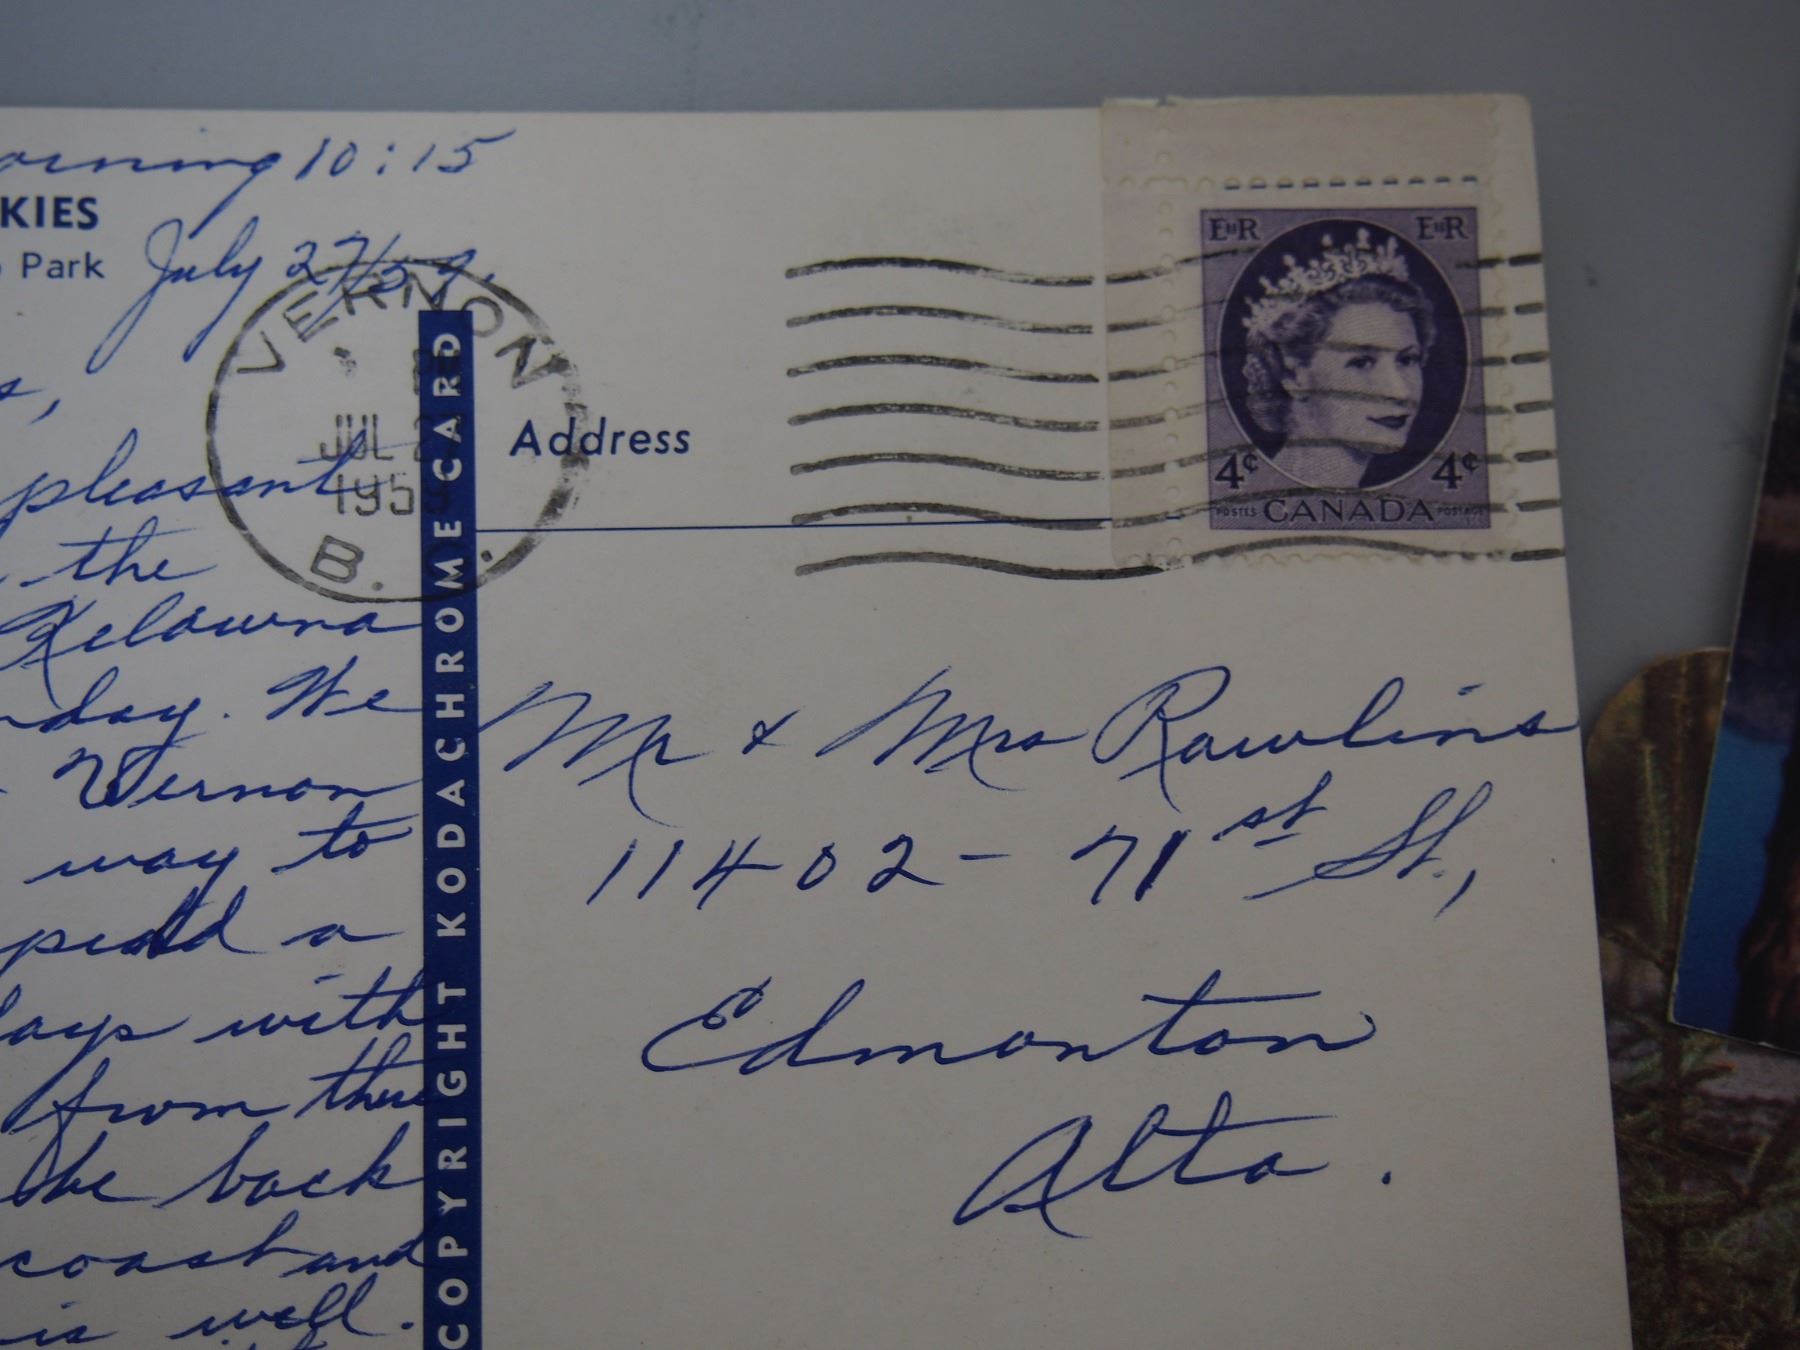 10:15
KIES
Park
July 27/59.
VERNON
JUL
195
B.
pleasant
the
Kelowna
We
Vernon
way to
a
with
from there
the back
coast and
is well.
COPYRIGHT KODACHROME CARD
Address
EIIR EIIR
4¢ 4¢
POSTES CANADA POSTAGE
Mr & Mrs Rawlins
11402 - 71st St.,
Edmonton
Alta.